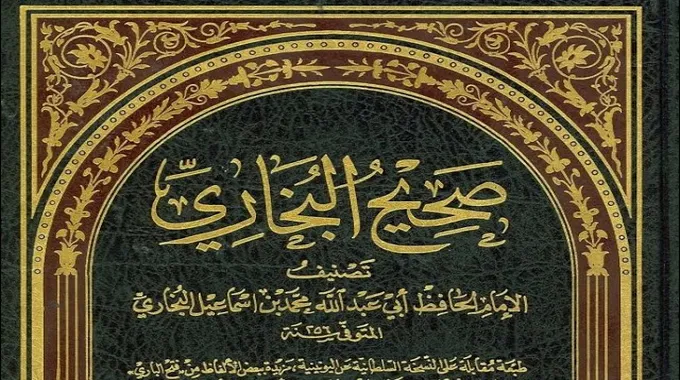 صَحِيحُ البُخَارِيِّ
تَصْنِيفُ
الإمَامِ الحَافِظِ أَبي عَبدِ اللَّهِ مُحمّد بْن اسْمَاعِيل البُخَارِيّ
المُتَوفّى سَنَة ٢٥٦
طبعَة مُقَابلة عَلى النّسخَة السُّلطَانيّة عَن اليُونينيّة، مَزيدة ببَعض الألفَاظ مِن «فتح البَاري»